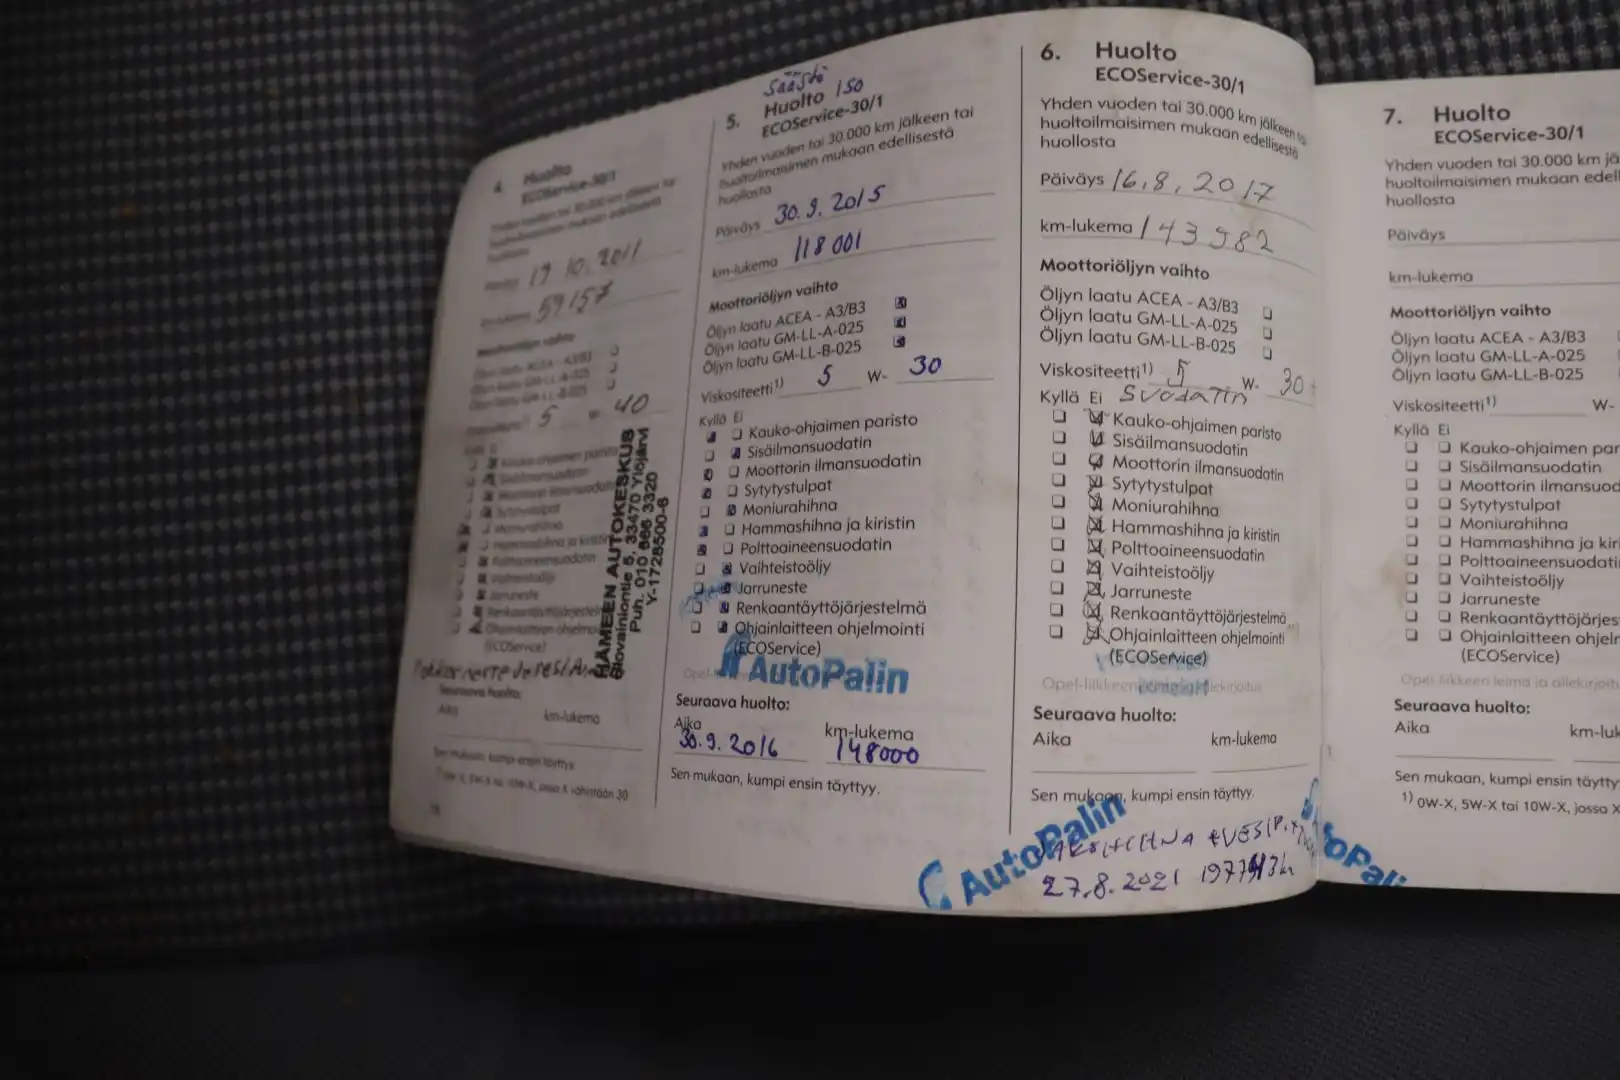 4. Huolto
ECOService-30/1
Yhden vuoden tai 30.000 km jälkeen tai
huoltoilmaisimen mukaan edellisestä
huollosta
19 10. 2011
59157
Moottoriöljyn vaihto
Öljyn laatu ACEA - A3/B3
Öljyn laatu GM-LL-A-025
Öljyn laatu GM-LL-B-025
5 W- 40
Kauko-ohjaimen paristo
Sisäilmansuodatin
Moottorin ilmansuodatin
Sytytystulpat
Moniurahihna
Hammashihna ja kiristin
Polttoaineensuodatin
Vaihteistoöljy
Jarruneste
Renkaantäyttöjärjestelmä
Ohjainlaitteen ohjelmointi
(ECOService)
HÄMEEN AUTOKESKUS
33470 Ylöjärvi
Puh. 010 666 3320
Y-1728500-6
Seuraava huolto:
Aika km-lukema
Sen mukaan, kumpi ensin täyttyy.
säästö
150
5. Huolto
ECOService-30/1
Yhden vuoden tai 30.000 km jälkeen tai
huoltoilmaisimen mukaan edellisestä
huollosta
Päiväys 30.9.2015
km-lukema 118001
Moottoriöljyn vaihto
Öljyn laatu ACEA - A3/B3
Öljyn laatu GM-LL-A-025
Öljyn laatu GM-LL-B-025
Viskositeetti1) 5 W- 30
Kyllä Ei
Kauko-ohjaimen paristo
Sisäilmansuodatin
Moottorin ilmansuodatin
Sytytystulpat
Moniurahihna
Hammashihna ja kiristin
Polttoaineensuodatin
Vaihteistoöljy
Jarruneste
Renkaantäyttöjärjestelmä
Ohjainlaitteen ohjelmointi
(ECOService)
AutoPalin
Seuraava huolto:
Aika km-lukema
30.9.2016 148000
Sen mukaan, kumpi ensin täyttyy.
6. Huolto
ECOService-30/1
Yhden vuoden tai 30.000 km jälkeen tai
huoltoilmaisimen mukaan edellisestä
huollosta
Päiväys 16.8.2017
km-lukema 143982
Moottoriöljyn vaihto
Öljyn laatu ACEA - A3/B3
Öljyn laatu GM-LL-A-025
Öljyn laatu GM-LL-B-025
Viskositeetti1) 5 W- 30
Kyllä Ei Suodatin
Kauko-ohjaimen paristo
Sisäilmansuodatin
Moottorin ilmansuodatin
Sytytystulpat
Moniurahihna
Hammashihna ja kiristin
Polttoaineensuodatin
Vaihteistoöljy
Jarruneste
Renkaantäyttöjärjestelmä
Ohjainlaitteen ohjelmointi
(ECOService)
Seuraava huolto:
Aika km-lukema
Sen mukaan, kumpi ensin täyttyy.
AutoPalin
27.8.2021
7. Huolto
ECOService-30/1
Yhden vuoden tai 30.000 km jä
huoltoilmaisimen mukaan edell
huollosta
Päiväys
km-lukema
Moottoriöljyn vaihto
Öljyn laatu ACEA - A3/B3
Öljyn laatu GM-LL-A-025
Öljyn laatu GM-LL-B-025
Viskositeetti1) W-
Kyllä Ei
Kauko-ohjaimen par
Sisäilmansuodatin
Moottorin ilmansuod
Sytytystulpat
Moniurahihna
Hammashihna ja kir
Polttoaineensuodati
Vaihteistoöljy
Jarruneste
Renkaantäyttöjärjes
Ohjainlaitteen ohjelm
(ECOService)
Opel-liikkeen leima ja allekirjoitu
Seuraava huolto:
Aika km-luk
Sen mukaan, kumpi ensin täytty
1) 0W-X, 5W-X tai 10W-X, jossa X